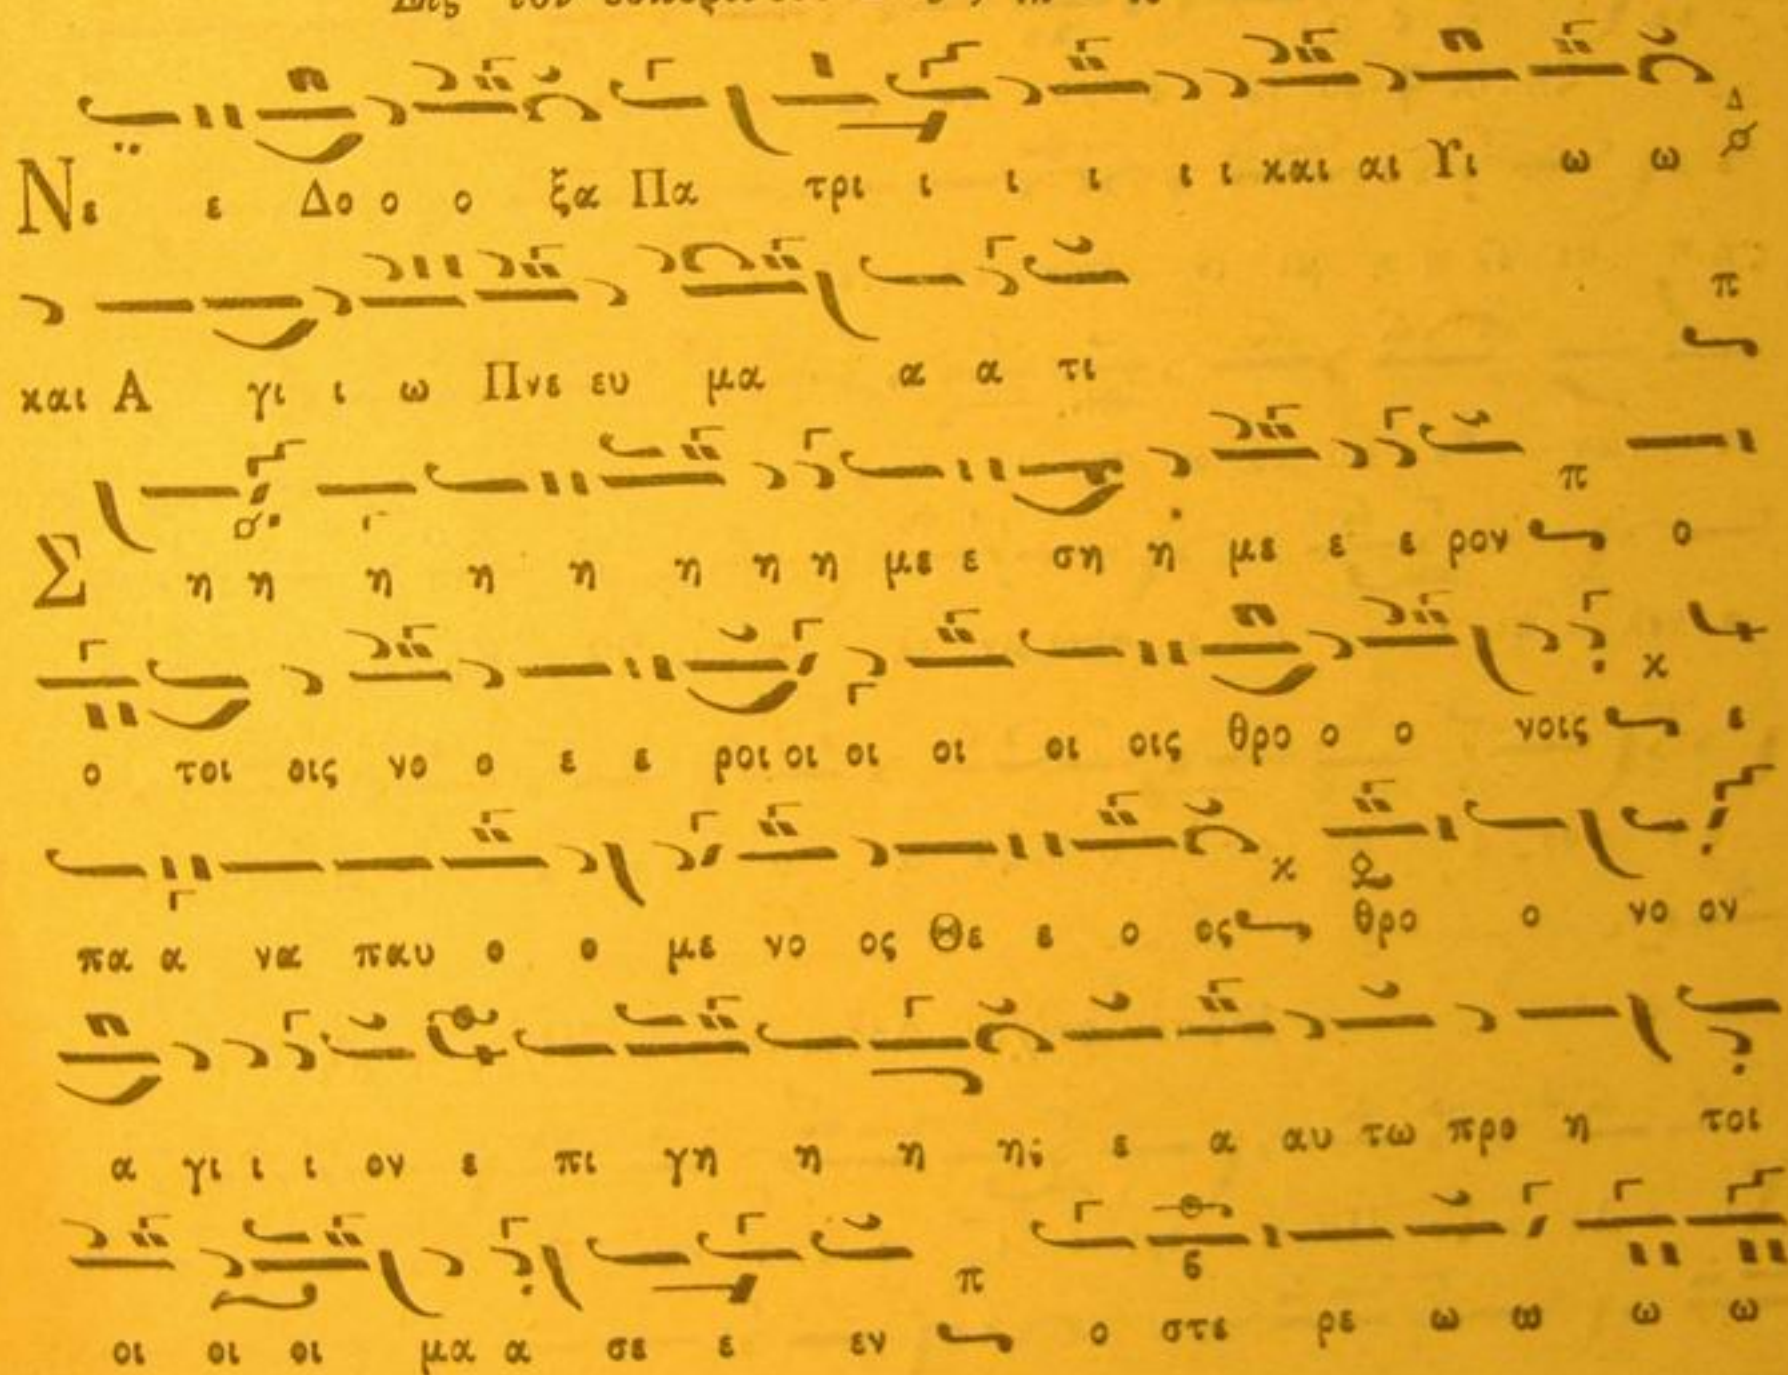 Νε ε Δο ο ο ξα Πα τρι ι ι ι ι ι και αι Υι ω ω
και Α γι ι ω Πνε ευ μα α α τι
Σ η η η η η η η με ε ση η με ε ε ρον ο
ο τοι οις νο ο ε ε ροι οι οι οι οι οις θρο ο ο νοις ε
πα α να παυ ο ο με νο ος Θε ε ο ος θρο ο νο ον
α γι ι ι ον ε πι γη η η ης ε α αυ τω προ η τοι
οι οι οι μα α σε ε εν ο στε ρε ω ω ω ω